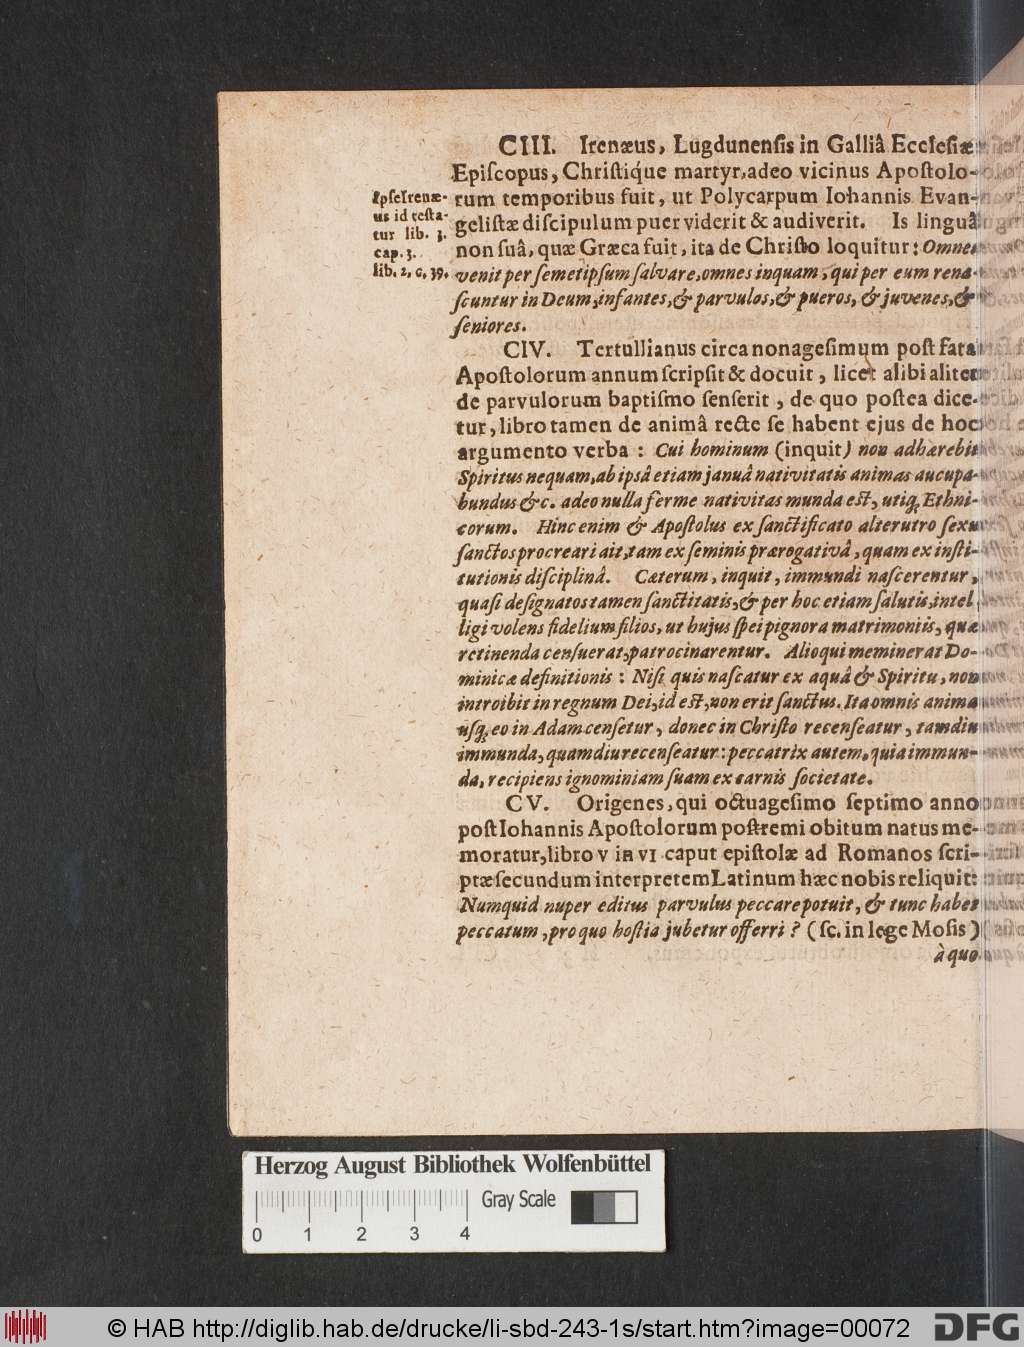 CIII. Irenæus, Lugdunensis in Galliâ Ecclesiæ
Episcopus, Christique martyr, adeo vicinus Apostolo-
rum temporibus fuit, ut Polycarpum Iohannis Evan-
gelistæ discipulum puer viderit & audiverit. Is linguâ
non suâ, quæ Græca fuit, ita de Christo loquitur: Omnes
venit per semetipsum salvare, omnes inquam, qui per eum rena-
scuntur in Deum, infantes, & parvulos, & pueros, & juvenes, &
seniores.
Ipse Irenæ-
us id testa-
tur lib. 3.
cap. 3.
lib. 2, c. 39.
CIV. Tertullianus circa nonagesimum post fata
Apostolorum annum scripsit & docuit, licet alibi aliter
de parvulorum baptismo senserit, de quo postea dice-
tur, libro tamen de animâ recte se habent ejus de hoc
argumento verba: Cui hominum (inquit) non adhærebit
Spiritus nequam, ab ipsâ etiam januâ nativitatis animas aucupa-
bundus &c. adeo nulla ferme nativitas munda est, utiq; Ethni-
corum. Hinc enim & Apostolus ex sanctificato alterutro sexu
sanctos procreari ait, tam ex seminis prærogativâ, quam ex insti-
tutionis disciplinâ. Cæterum, inquit, immundi nascerentur,
quasi designatos tamen sanctitatis, & per hoc etiam salutis, intel
ligi volens fidelium filios, ut hujus spei pignora matrimoniis, quæ
retinenda censuerat, patrocinarentur. Alioqui meminerat Do-
minicæ definitionis: Nisi quis nascatur ex aquâ & Spiritu, non
introibit in regnum Dei, id est, non erit sanctus. Ita omnis anima
usq; eo in Adam censetur, donec in Christo recenseatur, tamdiu
immunda, quamdiu recenseatur: peccatrix autem, quia immun-
da, recipiens ignominiam suam ex carnis societate.
CV. Origenes, qui octuagesimo septimo anno
post Iohannis Apostolorum postremi obitum natus me-
moratur, libro V in VI caput epistolæ ad Romanos scri-
ptæ secundum interpretem Latinum hæc nobis reliquit:
Numquid nuper editus parvulus peccare potuit, & tunc habet
peccatum, pro quo hostia jubetur offerri? (sc. in lege Mosis)
à quo
Herzog August Bibliothek Wolfenbüttel
Gray Scale
0 1 2 3 4
© HAB http://diglib.hab.de/drucke/li-sbd-243-1s/start.htm?image=00072
DFG